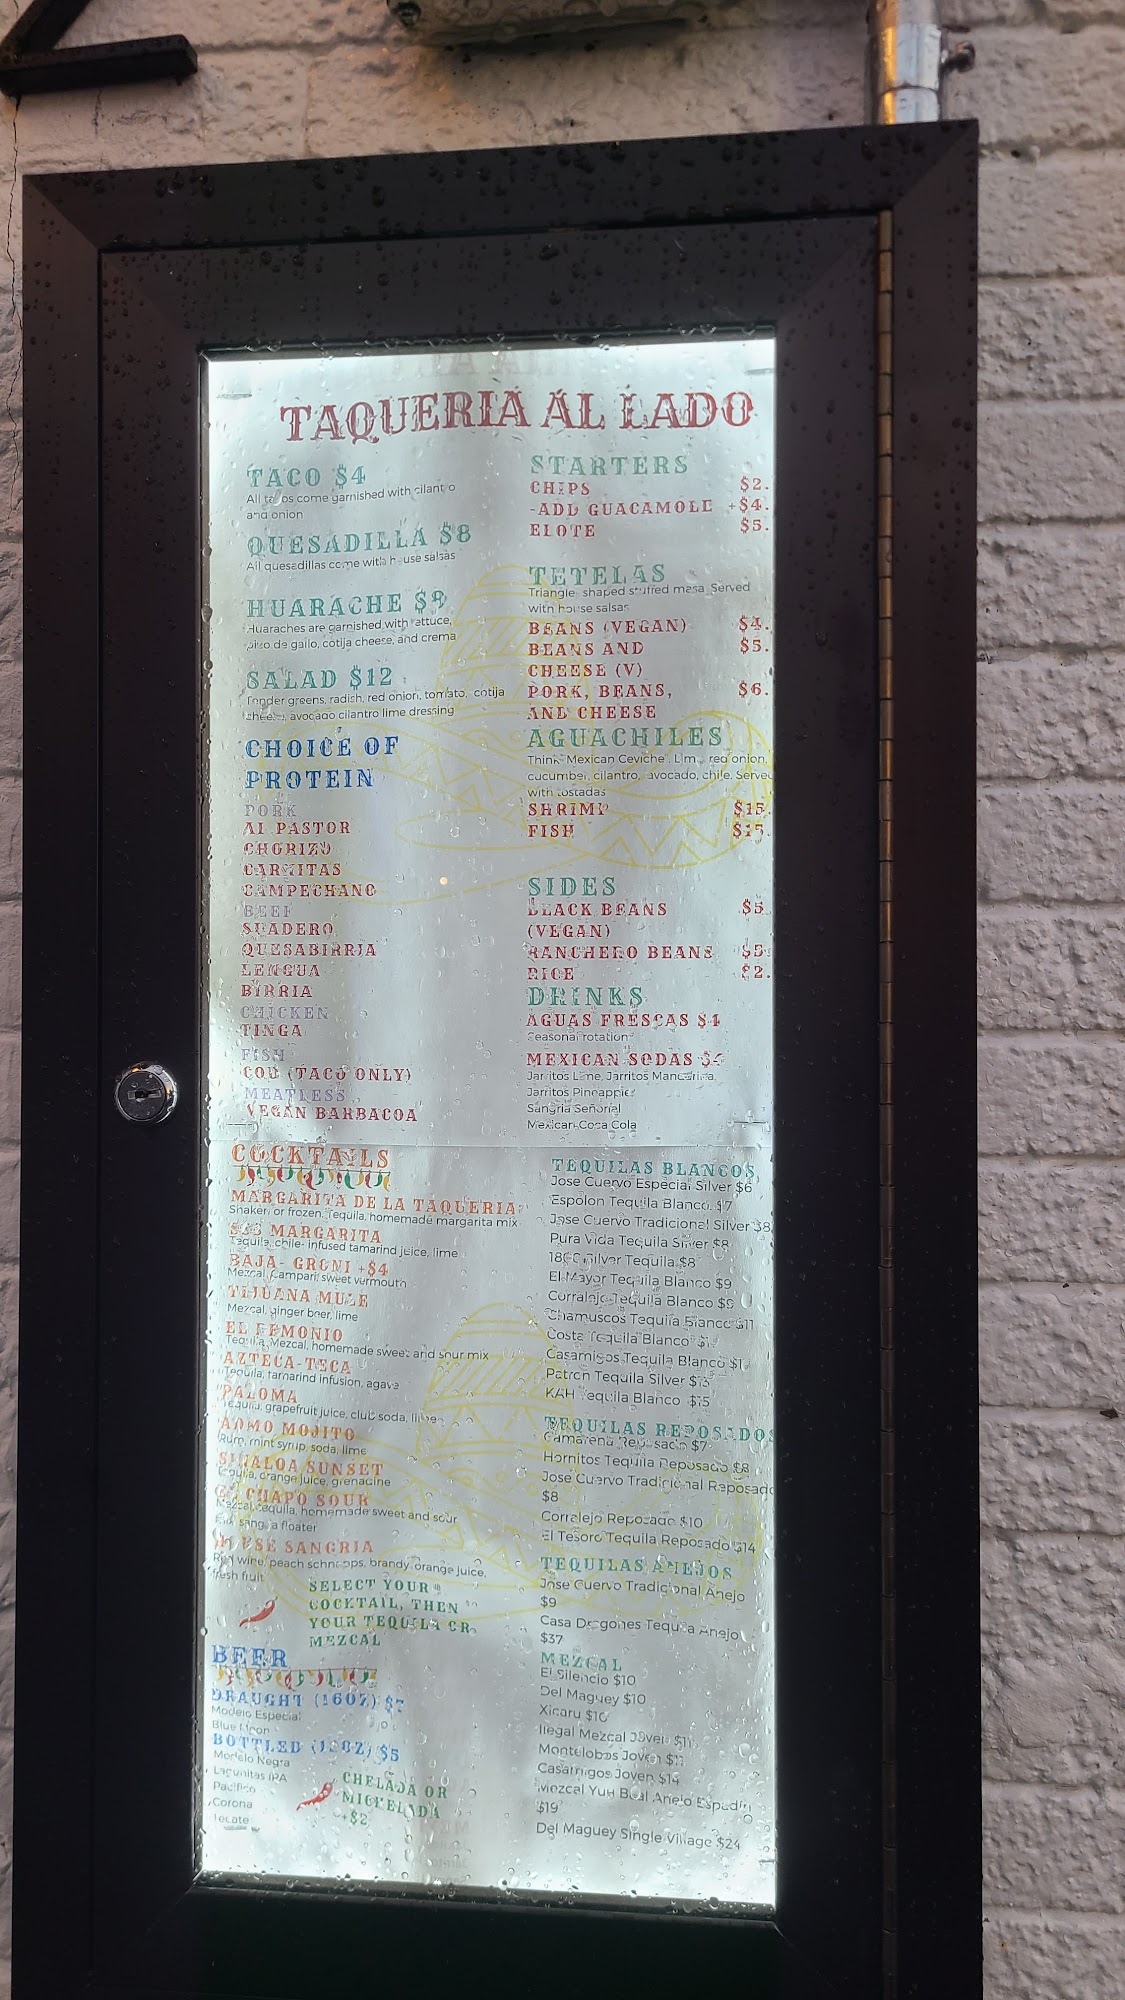 TAQUERIA AL LADO
TACO $4
All tacos come garnished with cilantro
and onion
QUESADILLA $8
All quesadillas come with house salsas
HUARACHE $9
Huaraches are garnished with lettuce,
pico de gallo, cotija cheese, and crema
SALAD $12
Tender greens, radish, red onion, tomato, cotija
cheese, avocado cilantro lime dressing
CHOICE OF
PROTEIN
PORK
AL PASTOR
CHORIZO
CARNITAS
CAMPECHANO
BEEF
SUADERO
QUESABIRRIA
LENGUA
BIRRIA
CHICKEN
TINGA
FISH
COD (TACO ONLY)
MEATLESS
VEGAN BARBACOA
STARTERS
CHIPS $2.
-ADD GUACAMOLE +$4.
ELOTE $5.
TETELAS
Triangle shaped stuffed masa. Served
with house salsas
BEANS (VEGAN) $4.
BEANS AND $5.
CHEESE (V)
PORK, BEANS, $6.
AND CHEESE
AGUACHILES
Think "Mexican Ceviche". Lime, red onion,
cucumber, cilantro, avocado, chile. Served
with tostadas
SHRIMP $15.
FISH $15.
SIDES
BLACK BEANS $5
(VEGAN)
RANCHERO BEANS $5
RICE $2.
DRINKS
AGUAS FRESCAS $4
Seasonal rotation
MEXICAN SODAS
Jarritos Lime, Jarritos Mandarina,
Jarritos Pineapple
Sangria Señorial
Mexican Coca Cola
COCKTAILS
MARGARITA DE LA TAQUERIA
Shaken or frozen. Tequila, homemade margarita mix
MARGARITA
Tequila, chile- infused tamarind juice, lime
BAJA- GRONI +$4
Mezcal, Campari, sweet vermouth
TIJUANA MULE
Mezcal, ginger beer, lime
EL DEMONIO
Tequila, Mezcal, homemade sweet and sour mix
AZTECA-TECA
Tequila, tamarind infusion, agave
PALOMA
Tequila, grapefruit juice, club soda, lime
ADMO MOJITO
Rum, mint syrup, soda, lime
SINALOA SUNSET
Tequila, orange juice, grenadine
EL CHAPO SOUR
Mezcal, tequila, homemade sweet and sour
mix, sangria floater
HOUSE SANGRIA
Red wine, peach schnapps, brandy, orange juice,
fresh fruit
SELECT YOUR
COCKTAIL, THEN
YOUR TEQUILA OR
MEZCAL
BEER
DRAUGHT (16OZ) $7
Modelo Especial
Blue Moon
BOTTLED (12OZ) $5
Modelo Negra
Lagunitas IPA
Pacifico
Corona
Tecate
CHELADA OR
MICHELADA
+$2
TEQUILAS BLANCOS
Jose Cuervo Especial Silver $6
Espolon Tequila Blanco $7
Jose Cuervo Tradicional Silver $8
Pura Vida Tequila Silver $8
1800 Silver Tequila $8
El Mayor Tequila Blanco $9
Corralejo Tequila Blanco $9
Chamuscos Tequila Blanco $11
Costa Tequila Blanco
Casamigos Tequila Blanco
Patron Tequila Silver $13
KAH Tequila Blanco $15
TEQUILAS REPOSADOS
Camarena Reposado $7
Hornitos Tequila Reposado $8
Jose Cuervo Tradicional Reposado
$8
Corralejo Reposado $10
El Tesoro Tequila Reposado $14
TEQUILAS AÑEJOS
Jose Cuervo Tradicional Anejo
$9
Casa Dragones Tequila Anejo
$37
MEZCAL
El Silencio $10
Del Maguey $10
Xicaru $10
Ilegal Mezcal Joven $11
Montelobos Joven $11
Casamigos Joven $14
Mezcal Yuu Baal Anejo Espadin
$19
Del Maguey Single Village $24